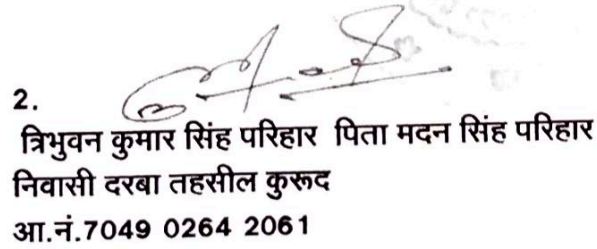 2.
त्रिभुवन कुमार सिंह परिहार पिता मदन सिंह परिहार
निवासी दरबा तहसील कुरूद
आ.नं.7049 0264 2061